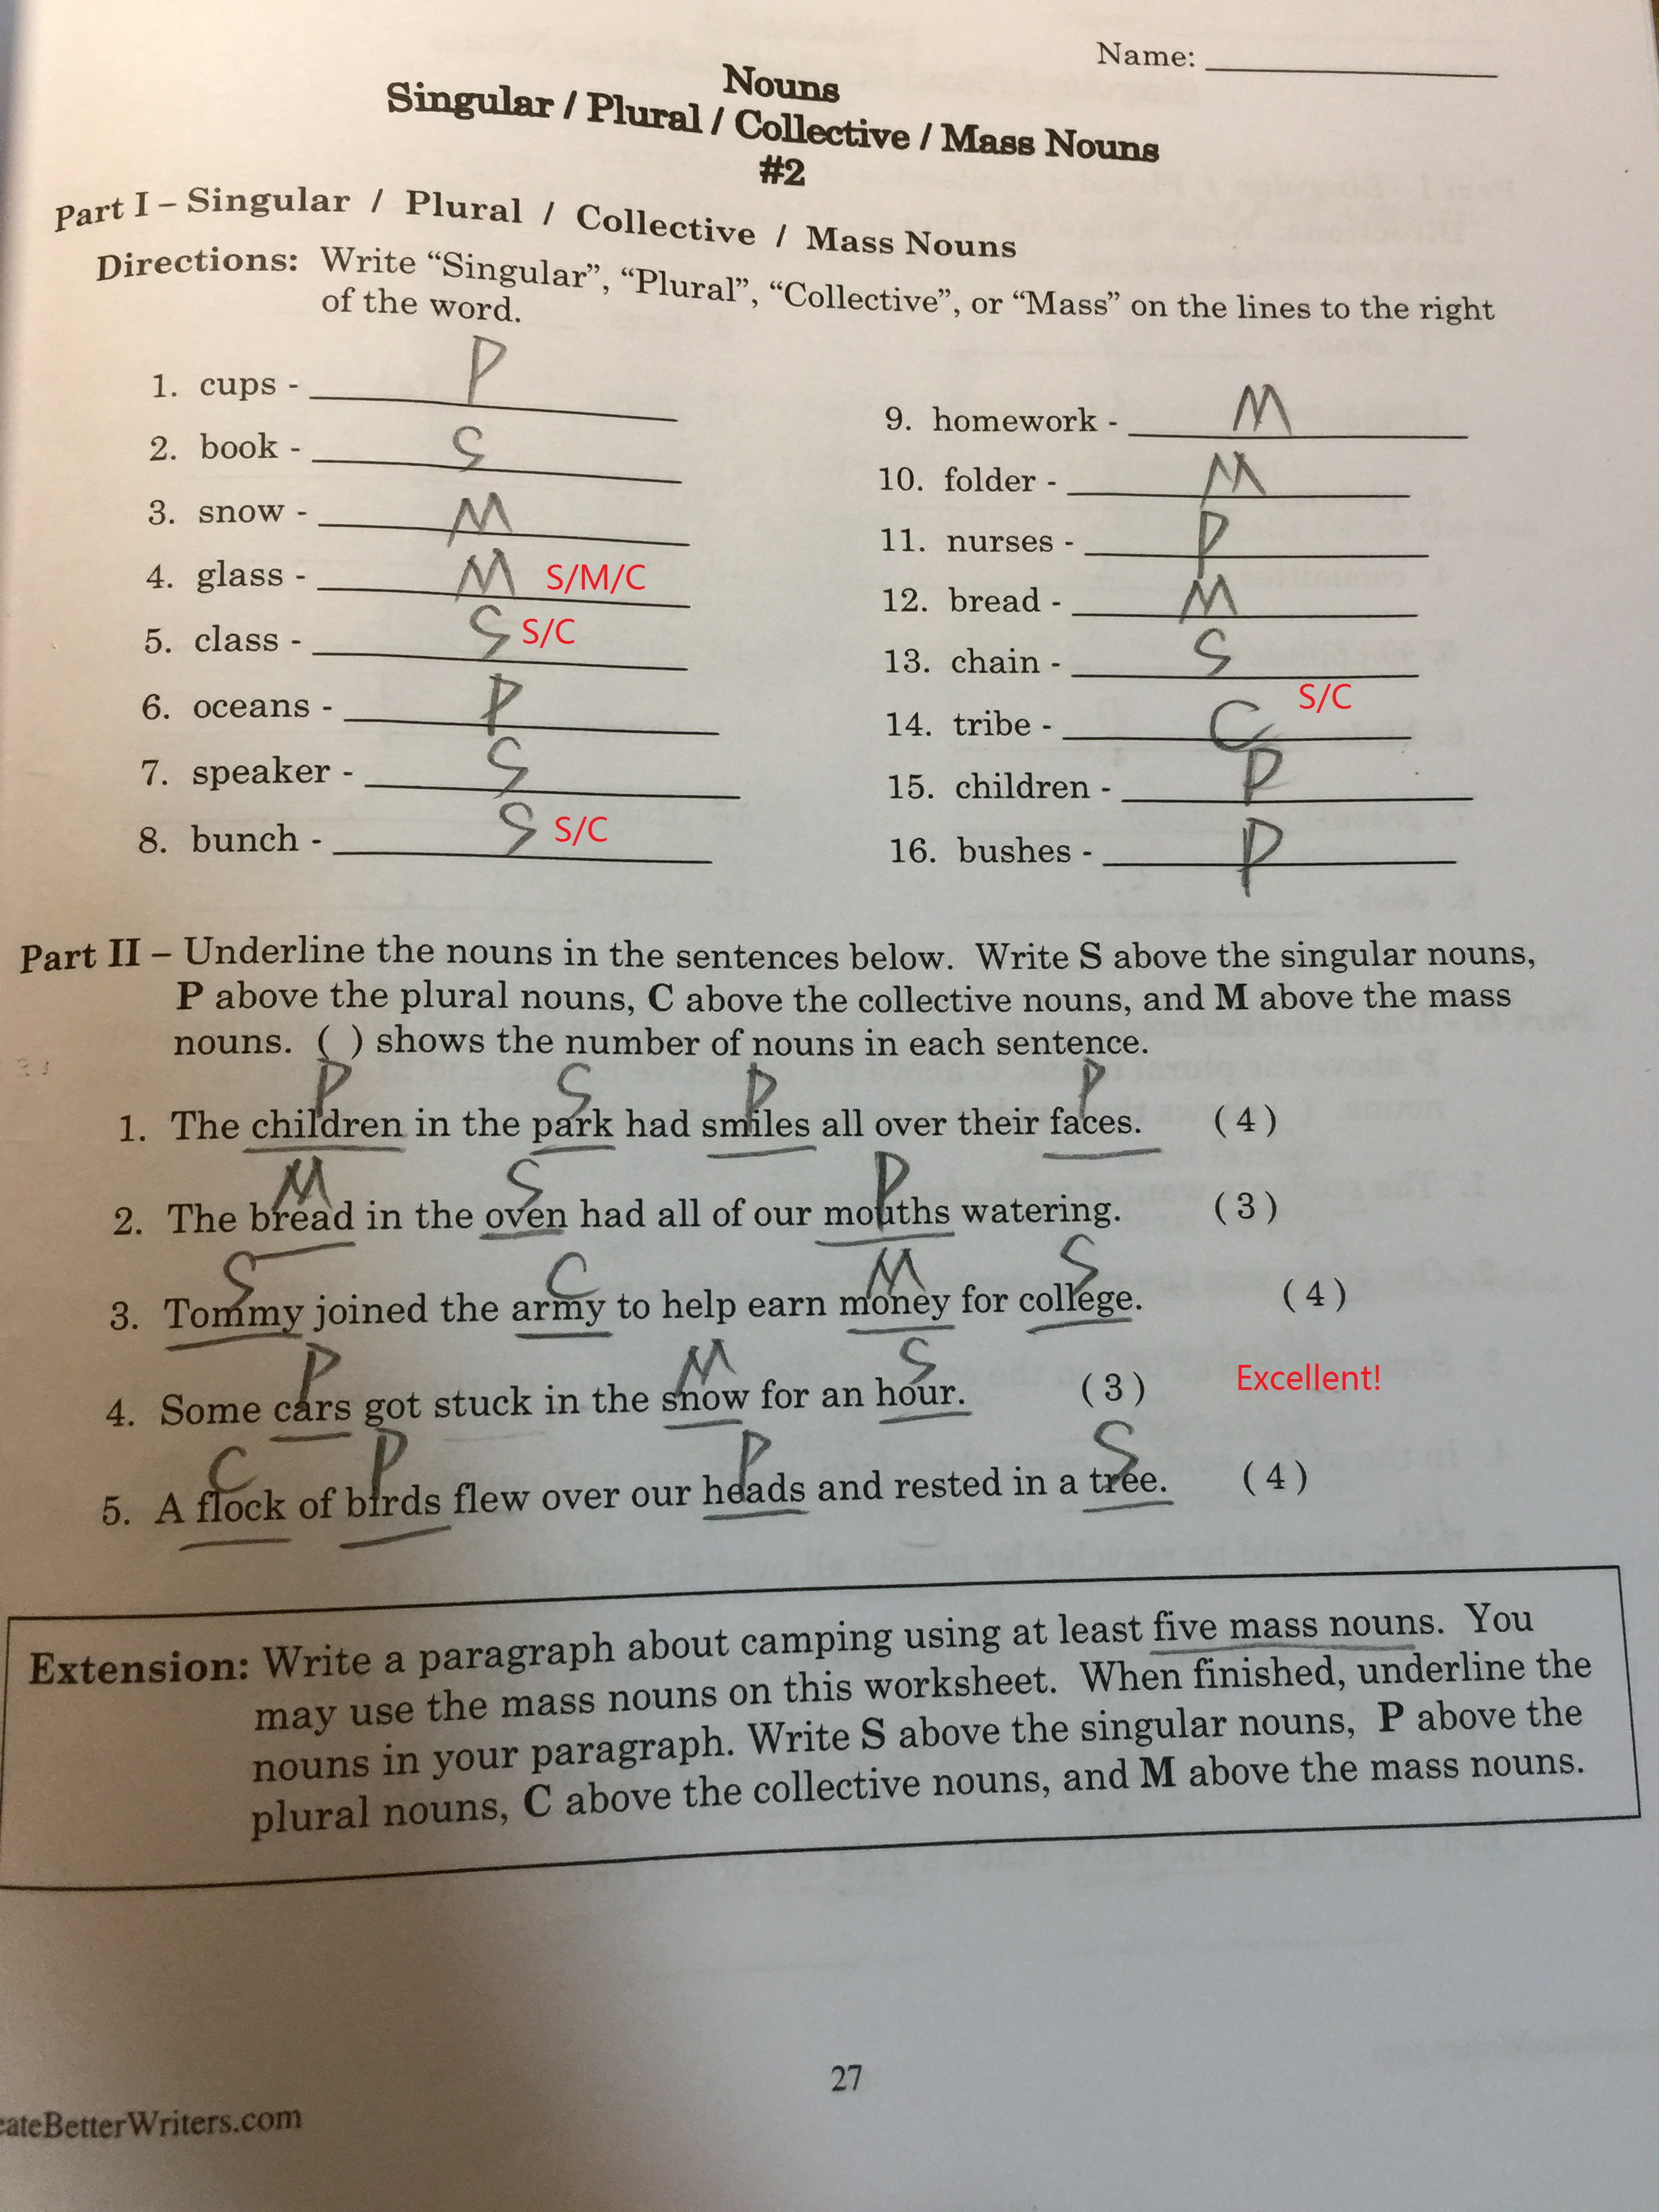 Name:
Nouns
Singular / Plural / Collective / Mass Nouns
#2
Part I – Singular / Plural / Collective / Mass Nouns
Directions: Write “Singular”, “Plural”, “Collective”, or “Mass” on the lines to the right
of the word.
1. cups - P
2. book - S
3. snow - M
4. glass - M S/M/C
5. class - S S/C
6. oceans - P
7. speaker - S
8. bunch - S S/C
9. homework - M
10. folder - M
11. nurses - P
12. bread - M
13. chain - S
14. tribe - C S/C
15. children - P
16. bushes - P
Part II – Underline the nouns in the sentences below. Write S above the singular nouns,
P above the plural nouns, C above the collective nouns, and M above the mass
nouns. ( ) shows the number of nouns in each sentence.
P S P P
1. The children in the park had smiles all over their faces. (4)
M S P
2. The bread in the oven had all of our mouths watering. (3)
S C M S
3. Tommy joined the army to help earn money for college. (4)
P M S
4. Some cars got stuck in the snow for an hour. (3) Excellent!
C P P S
5. A flock of birds flew over our heads and rested in a tree. (4)
Extension: Write a paragraph about camping using at least five mass nouns. You
may use the mass nouns on this worksheet. When finished, underline the
nouns in your paragraph. Write S above the singular nouns, P above the
plural nouns, C above the collective nouns, and M above the mass nouns.
27
eateBetterWriters.com